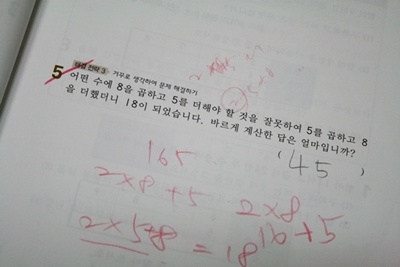 5 해결 전략 3 거꾸로 생각하여 문제 해결하기
어떤 수에 8을 곱하고 5를 더해야 할 것을 잘못하여 5를 곱하고 8
을 더했더니 18이 되었습니다. 바르게 계산한 답은 얼마입니까?
( 45 )
165
2×8+5 2×8
2×5+8 = 18 16+5